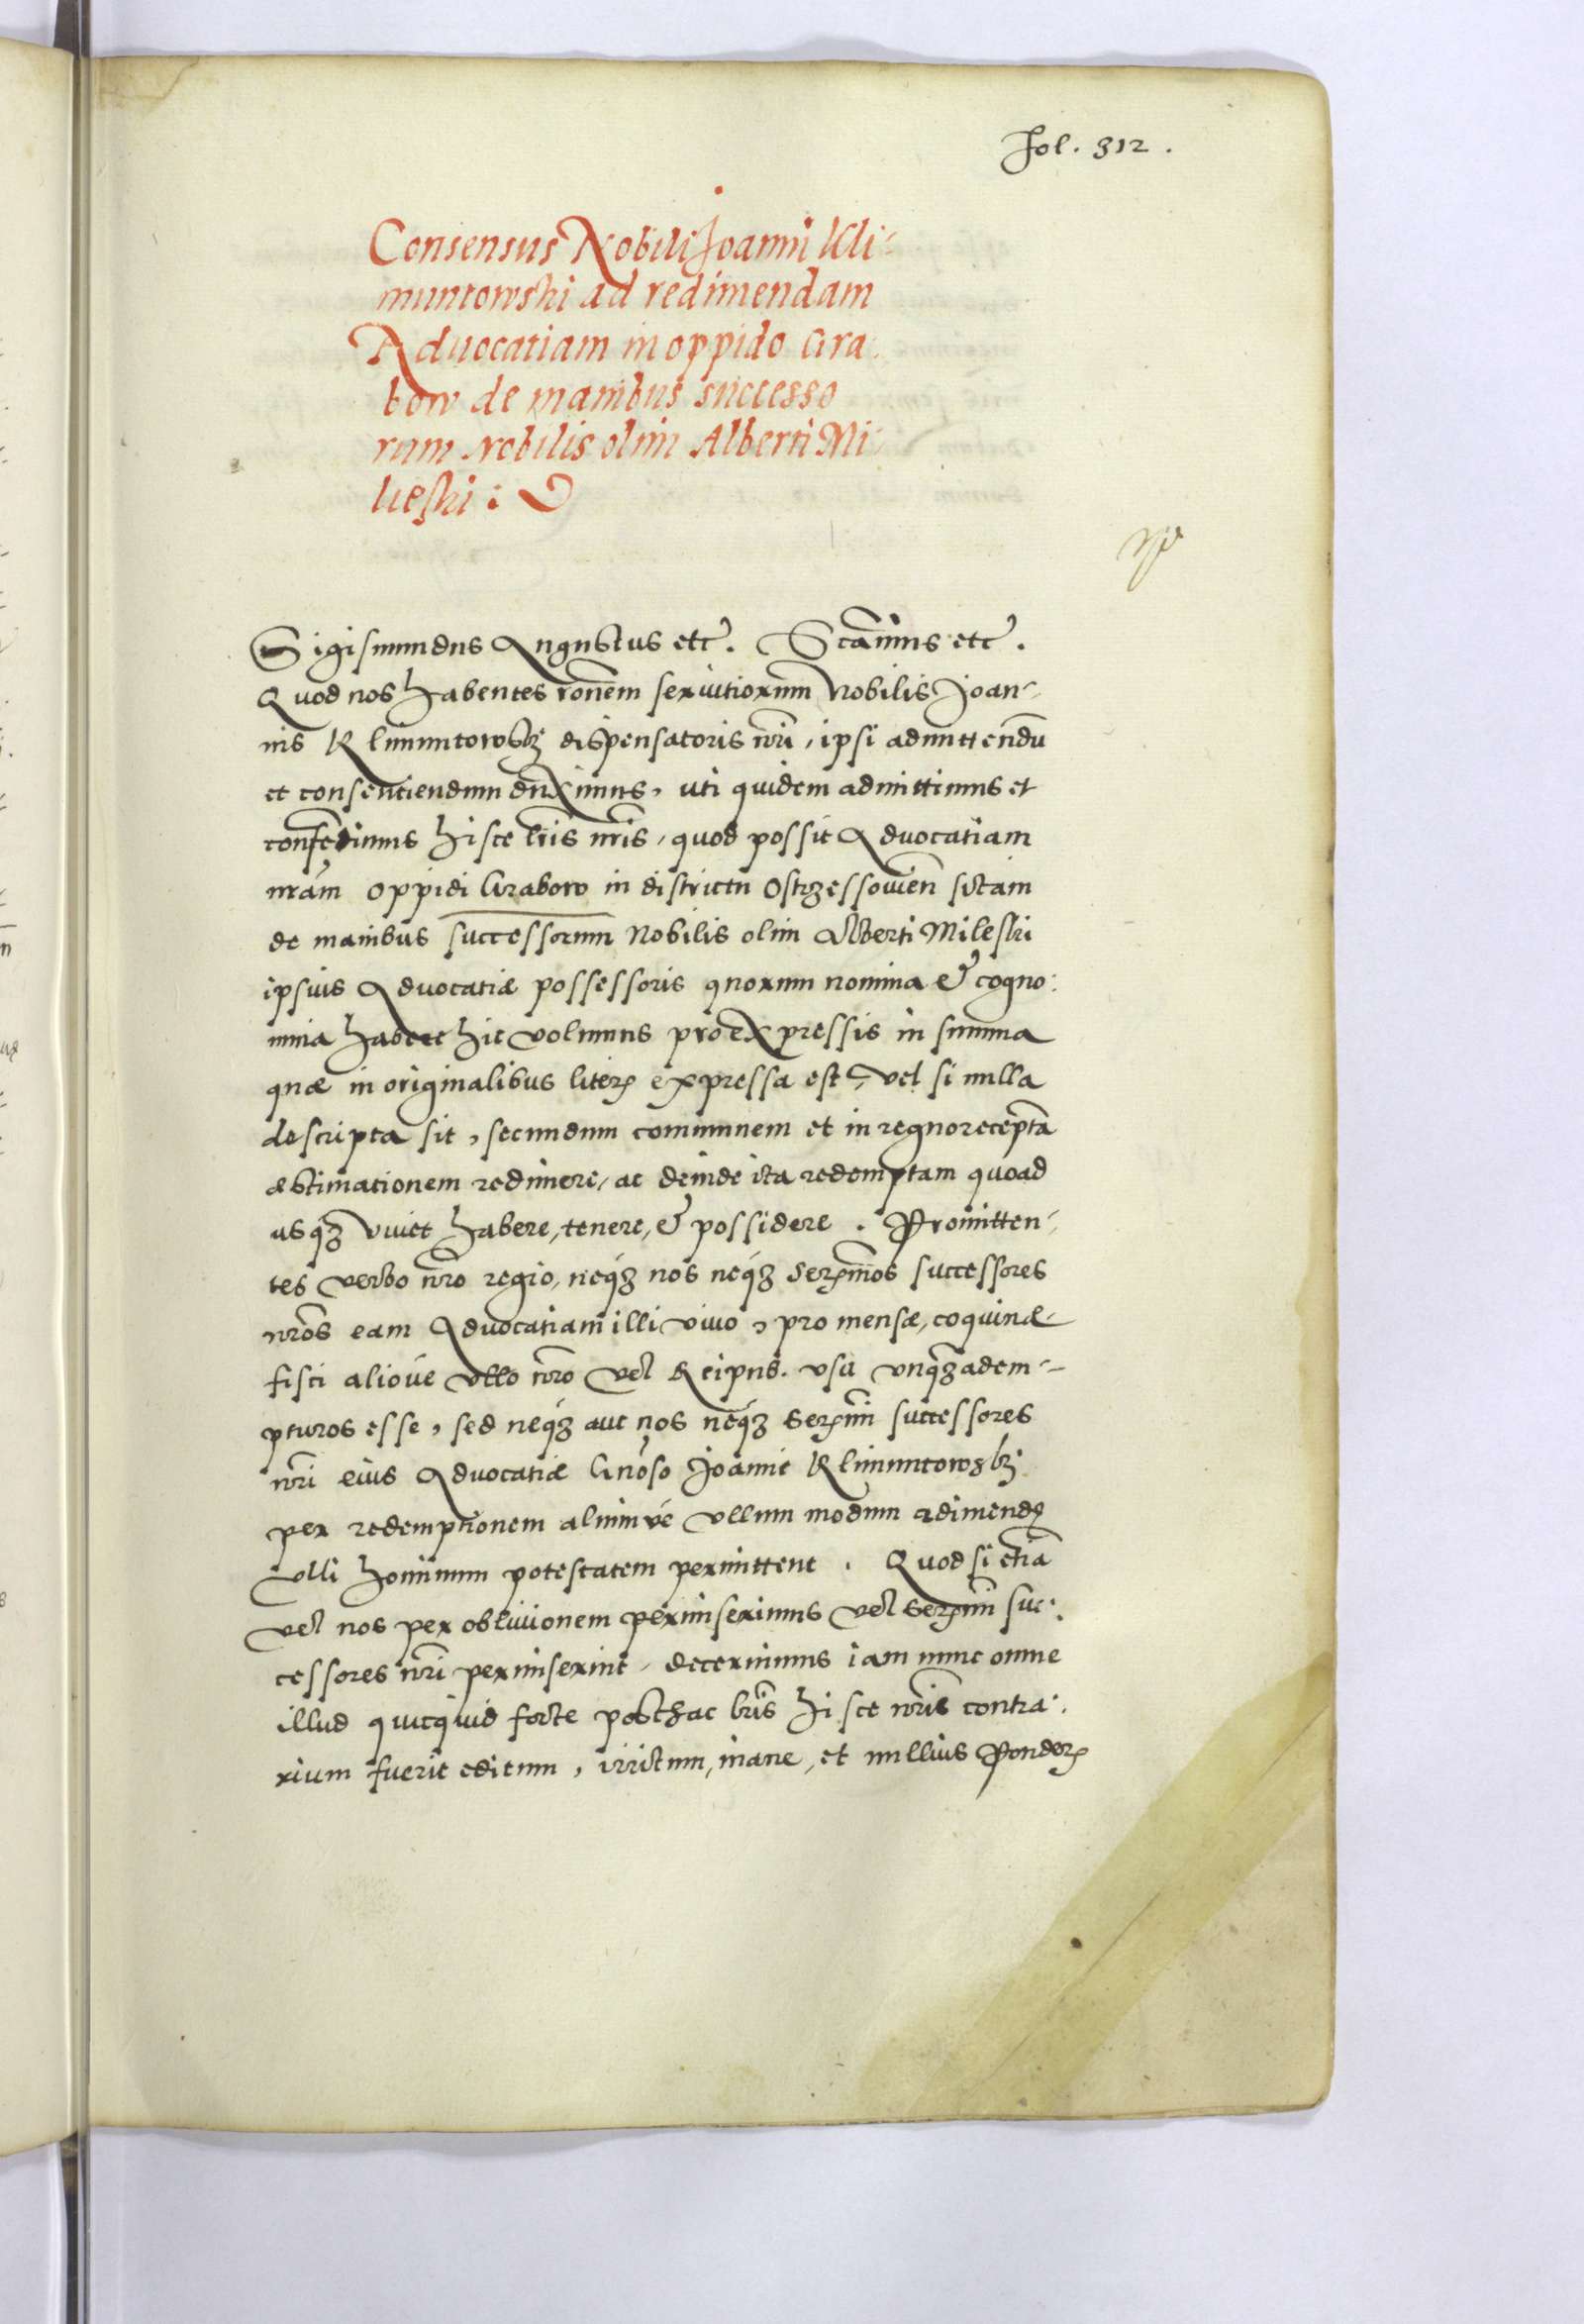 Fol. 312.
Consensus Nobili Joanni Kli-
muntowski ad redimendam
Aduocatiam in oppido Gra
bow de manibus successo
rum Nobilis olim Alberti Mi
lieski :
Sigismundus Augustus etc. Sčamus etc.
Quod nos habentes ronem seruitiorum Nobilis Joan-
nis Klimuntowsky dispensatoris nri, ipsi admittendū
et consentiendum duximus, uti quidem admittimus et
consentimus hisce lris nris, quod possit Aduocatiam
nram oppidi Grabow in districtu Ostrzessowien sitam
de manibus successorum Nobilis olim Alberti Mileski
ipsius Aduocatiæ possessoris quorum nomina & cogno:
mina haberi hic volumus pro expressis in summa
quæ in originalibus literis expressa est, vel si nulla
descripta sit, secundum communem et in regno receptā
æstimationem redimere, ac deinde ita redemptam quoad
usqz viuet habere, tenere, & possidere. Promitten-
tes verbo nro regio, neqz nos neqz Sermos successores
nros eam Aduocatiam illi viuo, pro mensæ, coquinæ
fisci alioue vllo nro vel Reipub. vsu vnqz adem-
pturos esse, sed neqz aut nos neqz Sermi successores
nri eius Aduocatiæ Gnoso Joanni Klimuntowsky
per redemptionem aliumue vllum modum adimendæ
vlli hominum potestatem permittent. Quod si etiā
vel nos per obliuionem permiserimus vel Sermi suc:
cessores nri permiserint, decernimus iam nunc omne
illud quicquid forte posthac lris hisce nris contra:
rium fuerit editum, irritum, inane, et nullius Ponderis